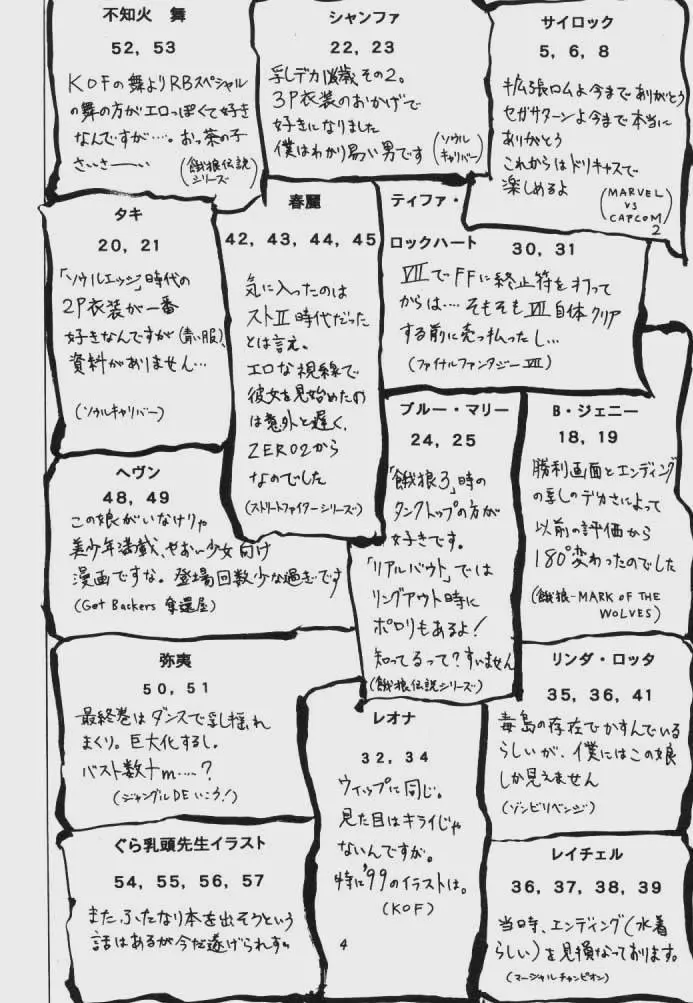 不知火 舞
52, 53
KOFの舞よりRBスペシャル
の舞の方がエロっぽくて好き
なんですが‥‥。お茶の子
さいさーーい
(餓狼伝説
シリーズ)
シャンファ
22, 23
乳デカ 歳その2。
3P衣装のおかげで
好きになりました
僕はわかり易い男です
(ソウル
キャリバー)
サイロック
5, 6, 8
拡張ロムよ今までありがとう
セガサターンよ今まで本当に
ありがとう
これからはドリキャスで
楽しめるよ
(MARVEL
VS
CAPCOM
2
タキ
20, 21
「ソウルエッジ」時代の
2P衣装が一番
好きなんですが(青い服)、
資料がありません…
(ソウルキャリバー)
春麗
42, 43, 44, 45
気に入ったのは
ストⅡ時代だった
とは言え。
エロな視線で
彼女を見始めたの
は意外と遅く、
ZERO2から
なのでした
(ストリートファイターシリーズ)
ティファ・
ロックハート
30, 31
ⅦでFFに終止符を打って
からは‥‥そもそもⅦ自体クリア
する前に売っ払ったし…
(ファイナルファンタジーⅦ)
ブルー・マリー
24, 25
「餓狼3」時の
タンクトップの方が
好きです。
「リアルバウト」では
リングアウト時に
ポロリもあるよ!
知ってるって?すいません
(餓狼伝説シリーズ)
B・ジェニー
18, 19
勝利画面とエンディング
の乳のデカさによって
以前の評価から
180°変わったのでした
(餓狼-MARK OF THE
WOLVES)
ヘヴン
48, 49
この娘がいなけりゃ
美少年満載、せおい少女向け
漫画ですな。登場回数少な過ぎです
(Get Backers 奪還屋)
弥夷
50, 51
最終巻はダンスで乳揺れ
まくり。巨大化するし。
バスト数十m‥‥?
(ジャングルDEいこう!)
レオナ
32, 34
ウィップに同じ。
見た目はキライじゃ
ないんですが。
特に'99のイラストは。
(KOF)
リンダ・ロッタ
35, 36, 41
毒島の存在でかすんでいる
らしいが、僕にはこの娘
しか見えません
(ゾンビリベンジ)
ぐら乳頭先生イラスト
54, 55, 56, 57
また、ふたなり本を出そうという
話はあるが今だ遂げられず。
レイチェル
36, 37, 38, 39
当日時、エンディング(水着
らしい)を見損なっております。
(マーシャルチャンピオン)
4